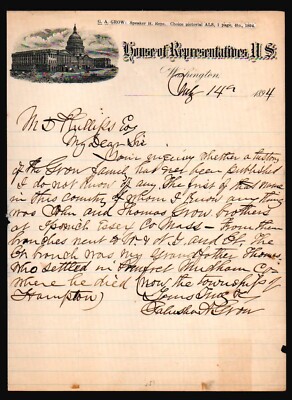 G. A. GROW. Speaker of House. Choice pictorial ALS, 1 page, 8vo, 1894.
House of Representatives, U.S.
Washington,
July 14th 1894
M D Phillips Esq
My Dear Sir
Your enquiry whether a history
of the Grow family has ever been published
I do not know of any. The first of the name
in this country of whom I know any thing
was John and Thomas Grow brothers
at Ipswich Essex Co Mass— From them
branches went to N. H. and Ct. The
Ct branch was my Grandfather Thomas
who settled in Pomfret Windham Co
where he died (Now the township of
Hampton)
Yours Truly
Galusha A. Grow